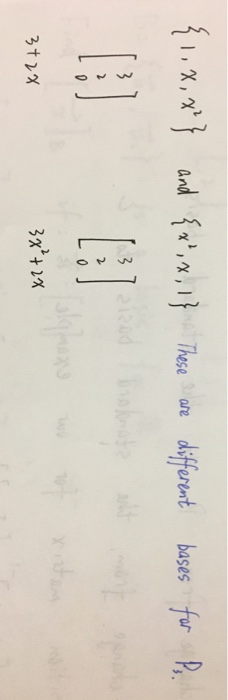 {1, x, x²} and {x², x, 1} These are different bases for P₃.
[3 2 0] [3 2 0]
3+2x 3x²+2x